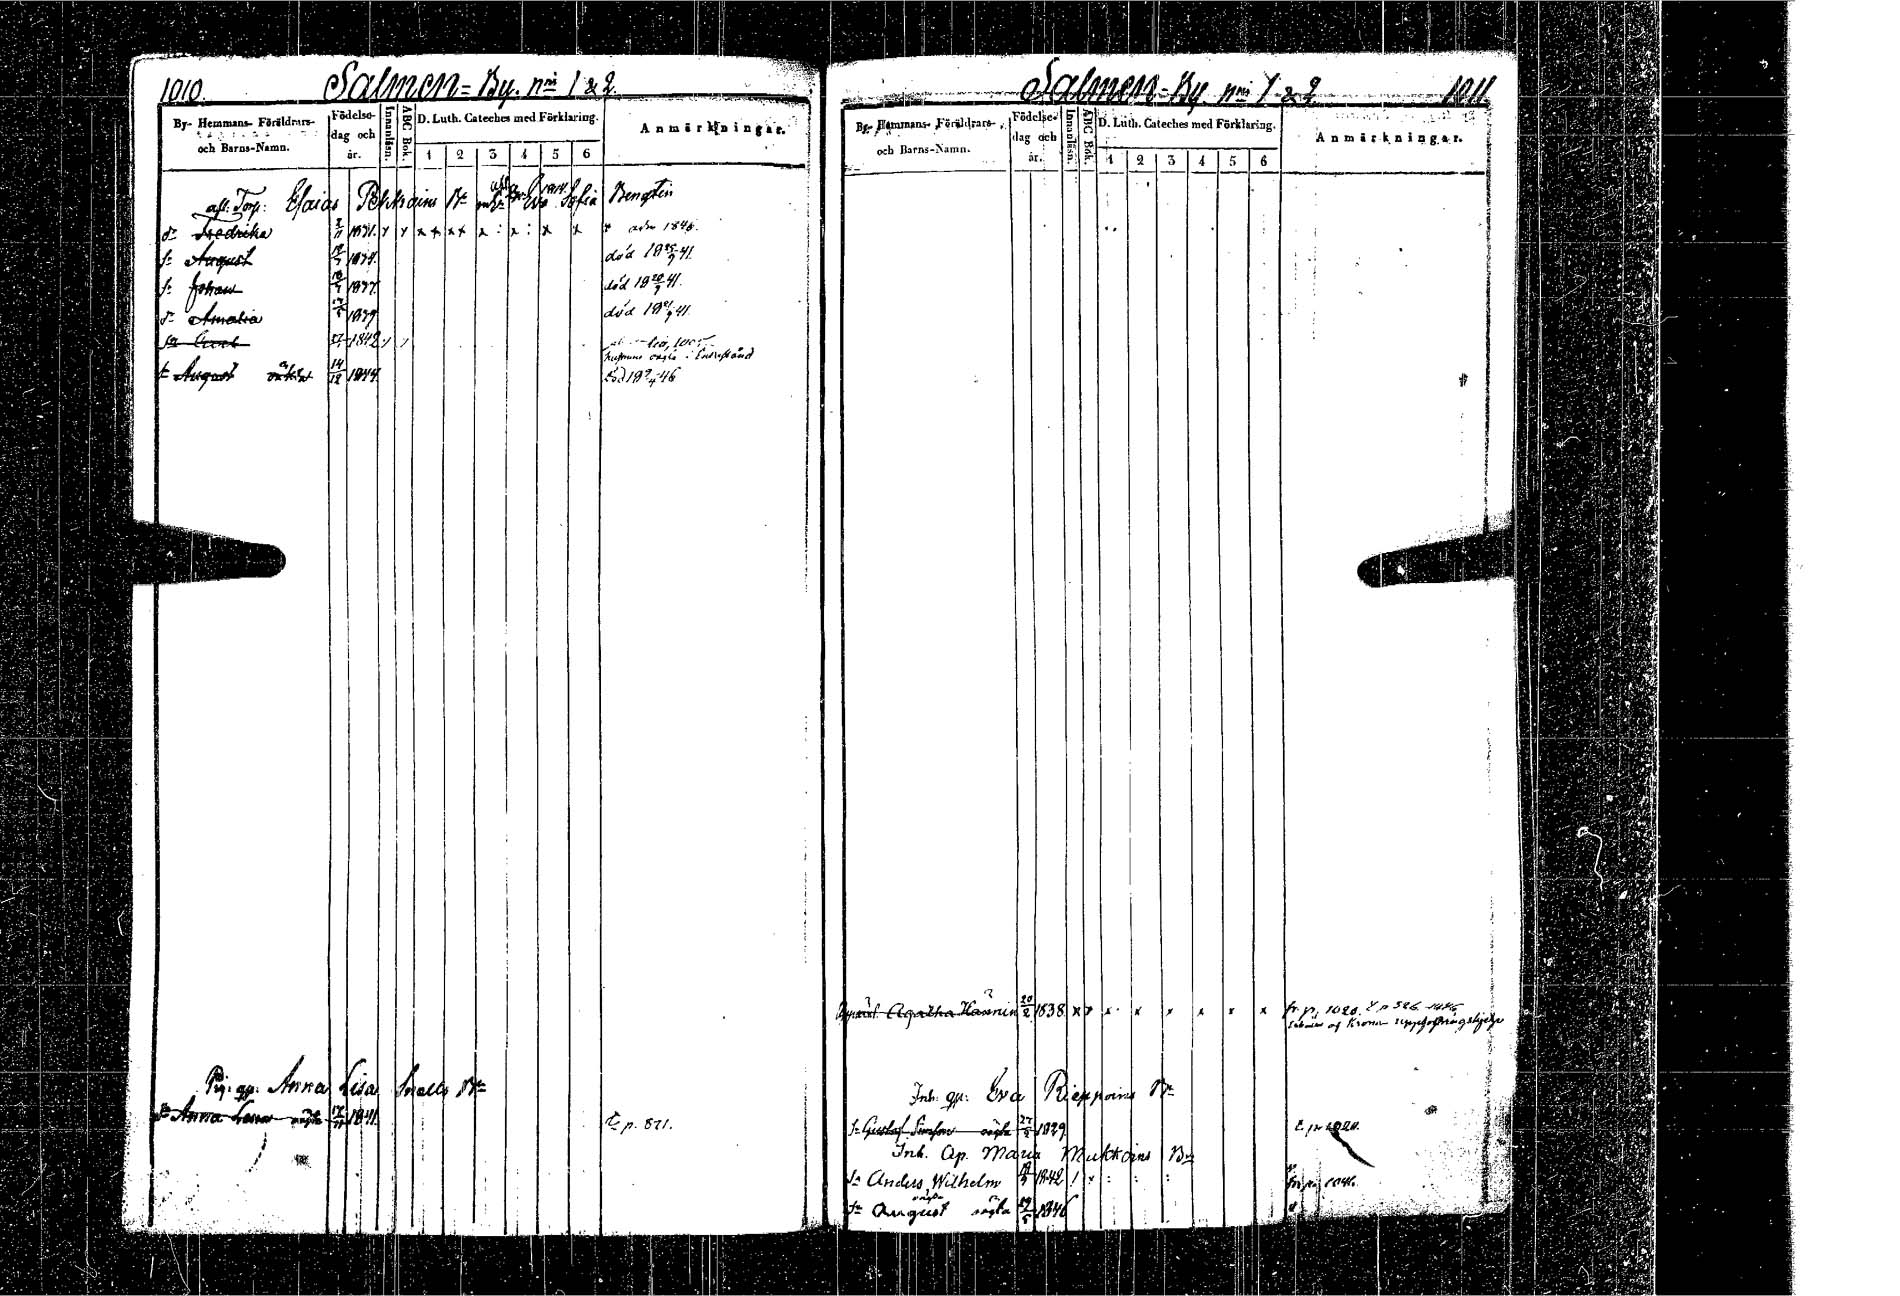 1010. Salmen = By. nri 1 & 2.
By- Hemmans- Föräldrars- och Barns-Namn.
Födelse- dag och år.
Innanläsn.
ABC Bok.
D. Luth. Cateches med Förklaring.
1 2 3 4 5 6
Anmärkningar.
afl. Torp: Esaias Eva Sofia Bengtsn
Dr Fredrika 1831. x x
Sn August 1834. död 18 25/9 41.
Sn Johan 1837. död 18 20/9 41.
Dr Amalia 1839 död 18 21/9 41.
1842
Sn August oäkta 14/12 1844. död 18 46
Pig: gp: Anna Lisa Snells Bn
Dr Anna Lena oägta 17/11 1841. p. 871.
Salmen = By. nri 1 & 2 1011
By- Hemmans- Föräldrars- och Barns-Namn.
Födelse- dag och år.
Innanläsn.
ABC Bok.
D. Luth. Cateches med Förklaring.
1 2 3 4 5 6
Anmärkningar.
Agatha Hännin 20/2 1838 x x x x x x x x fr. p. 1020.
af Kronan
Inh: gp: Eva Rieppoins Bn
Sn Gustaf oägta 27/2 1829
Inh. Gp. Maria Mukkoins Bn
Sn Anders Wilhelm 1842 fr. p. 1046.
Sn August oägta 1846